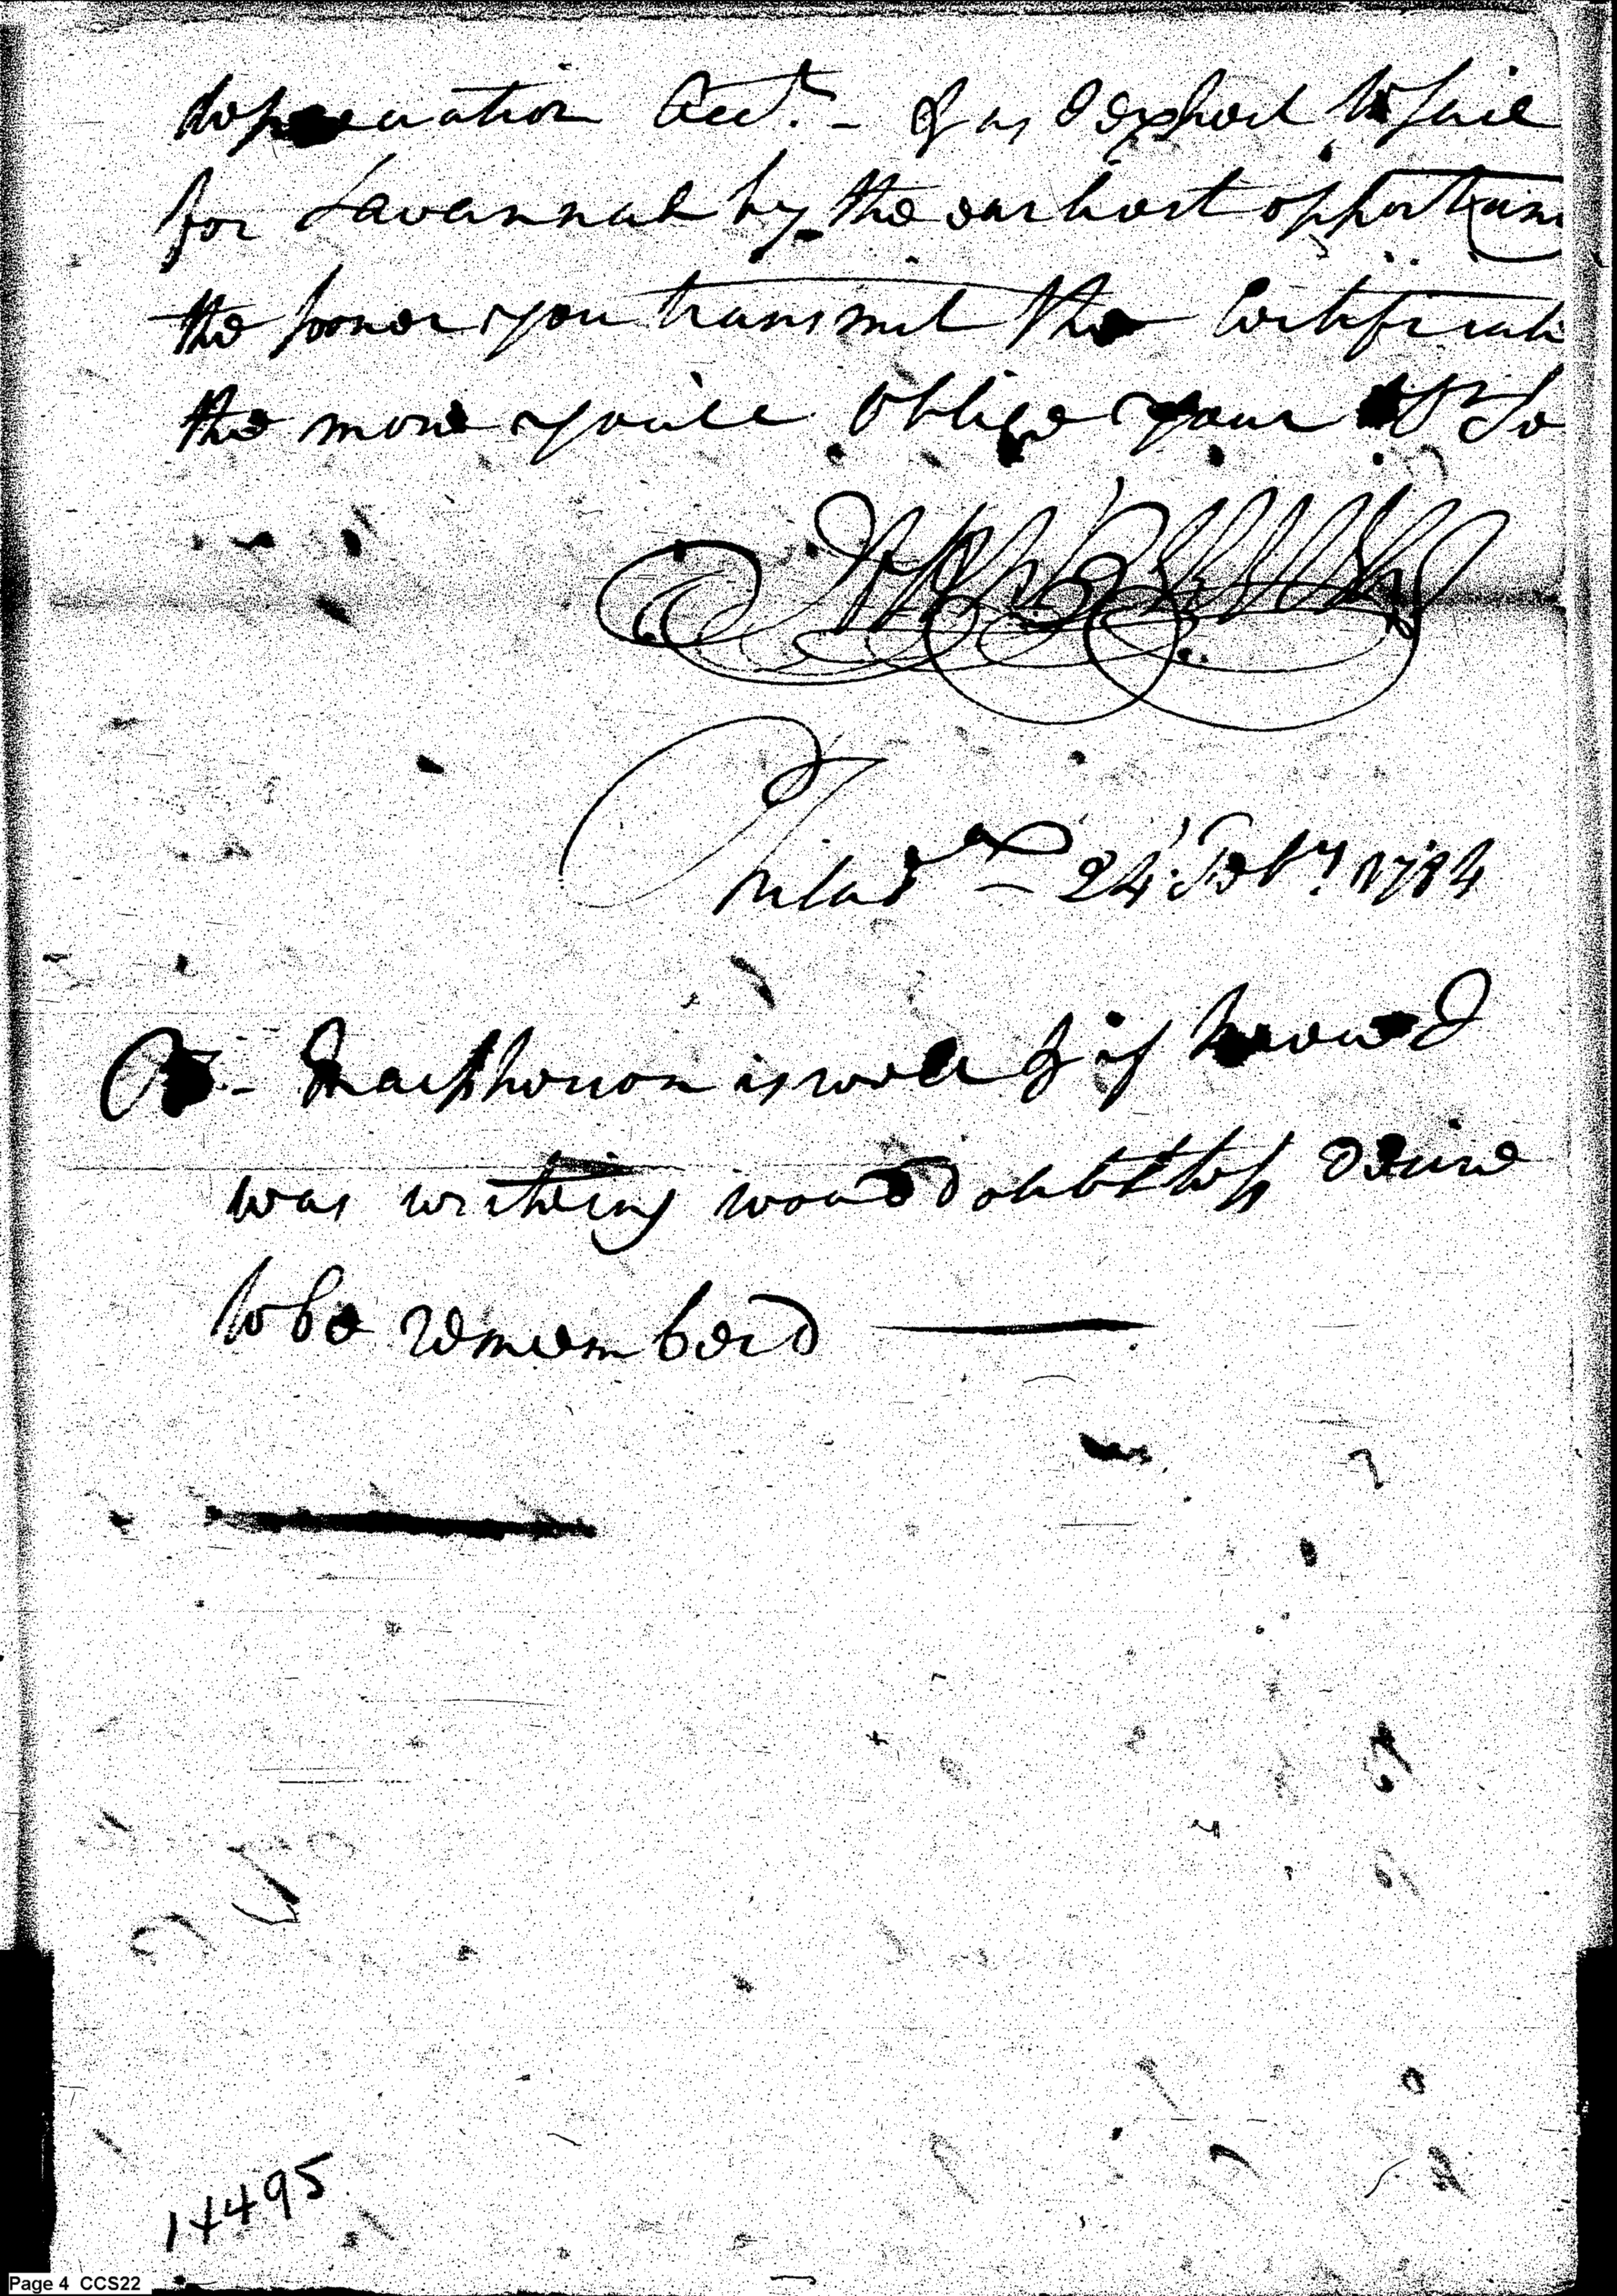 depreciation Acct. - & as I expect to Sail
for Savannah by the earliest opportuni
the sooner you transmit the Certificate
the more you'll Oblige your
Philad - 24 Feby 1784
Macpherson is well & if knowed I
was writeing woud doubtless desire
to be rememberd
14495
Page 4 CCS22